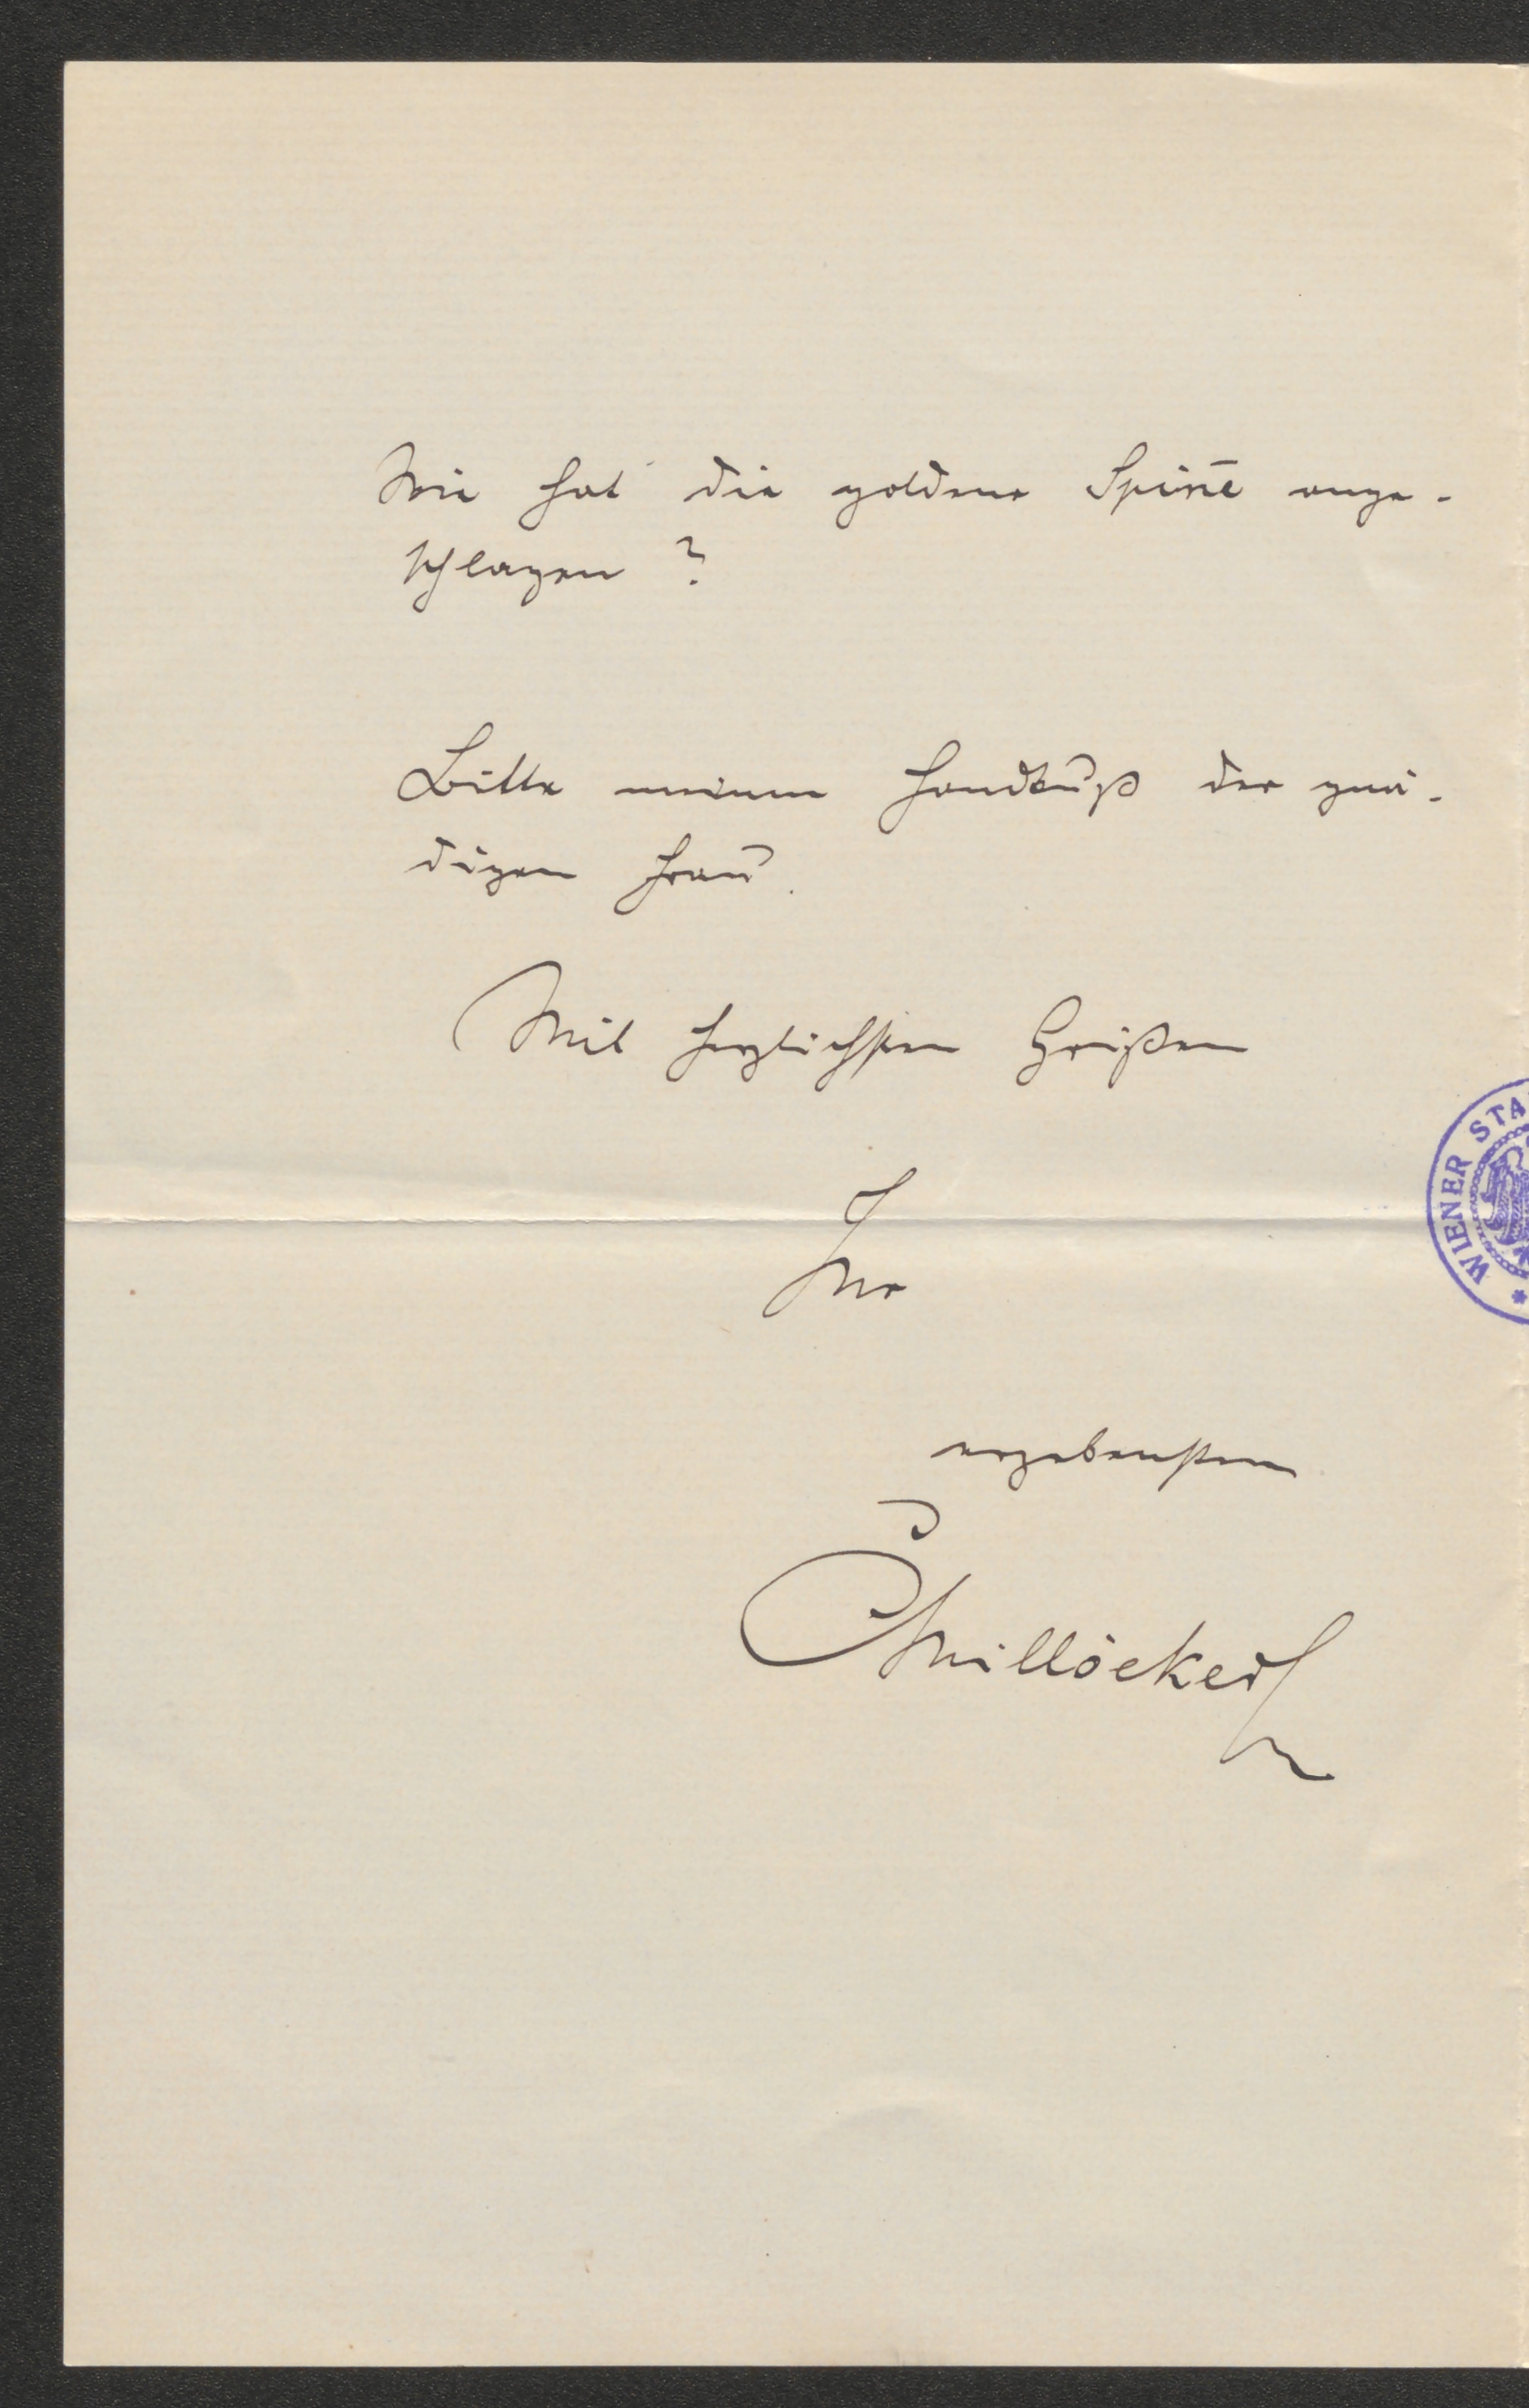 Wie hat die goldene Spin̄e ange-
schlagen?
Bitte meinen Handkuß der gnä-
digen Frau.
Mit herzlichsten Grüßen
Ihr
ergebenster
CMillöcker
WIENER STA